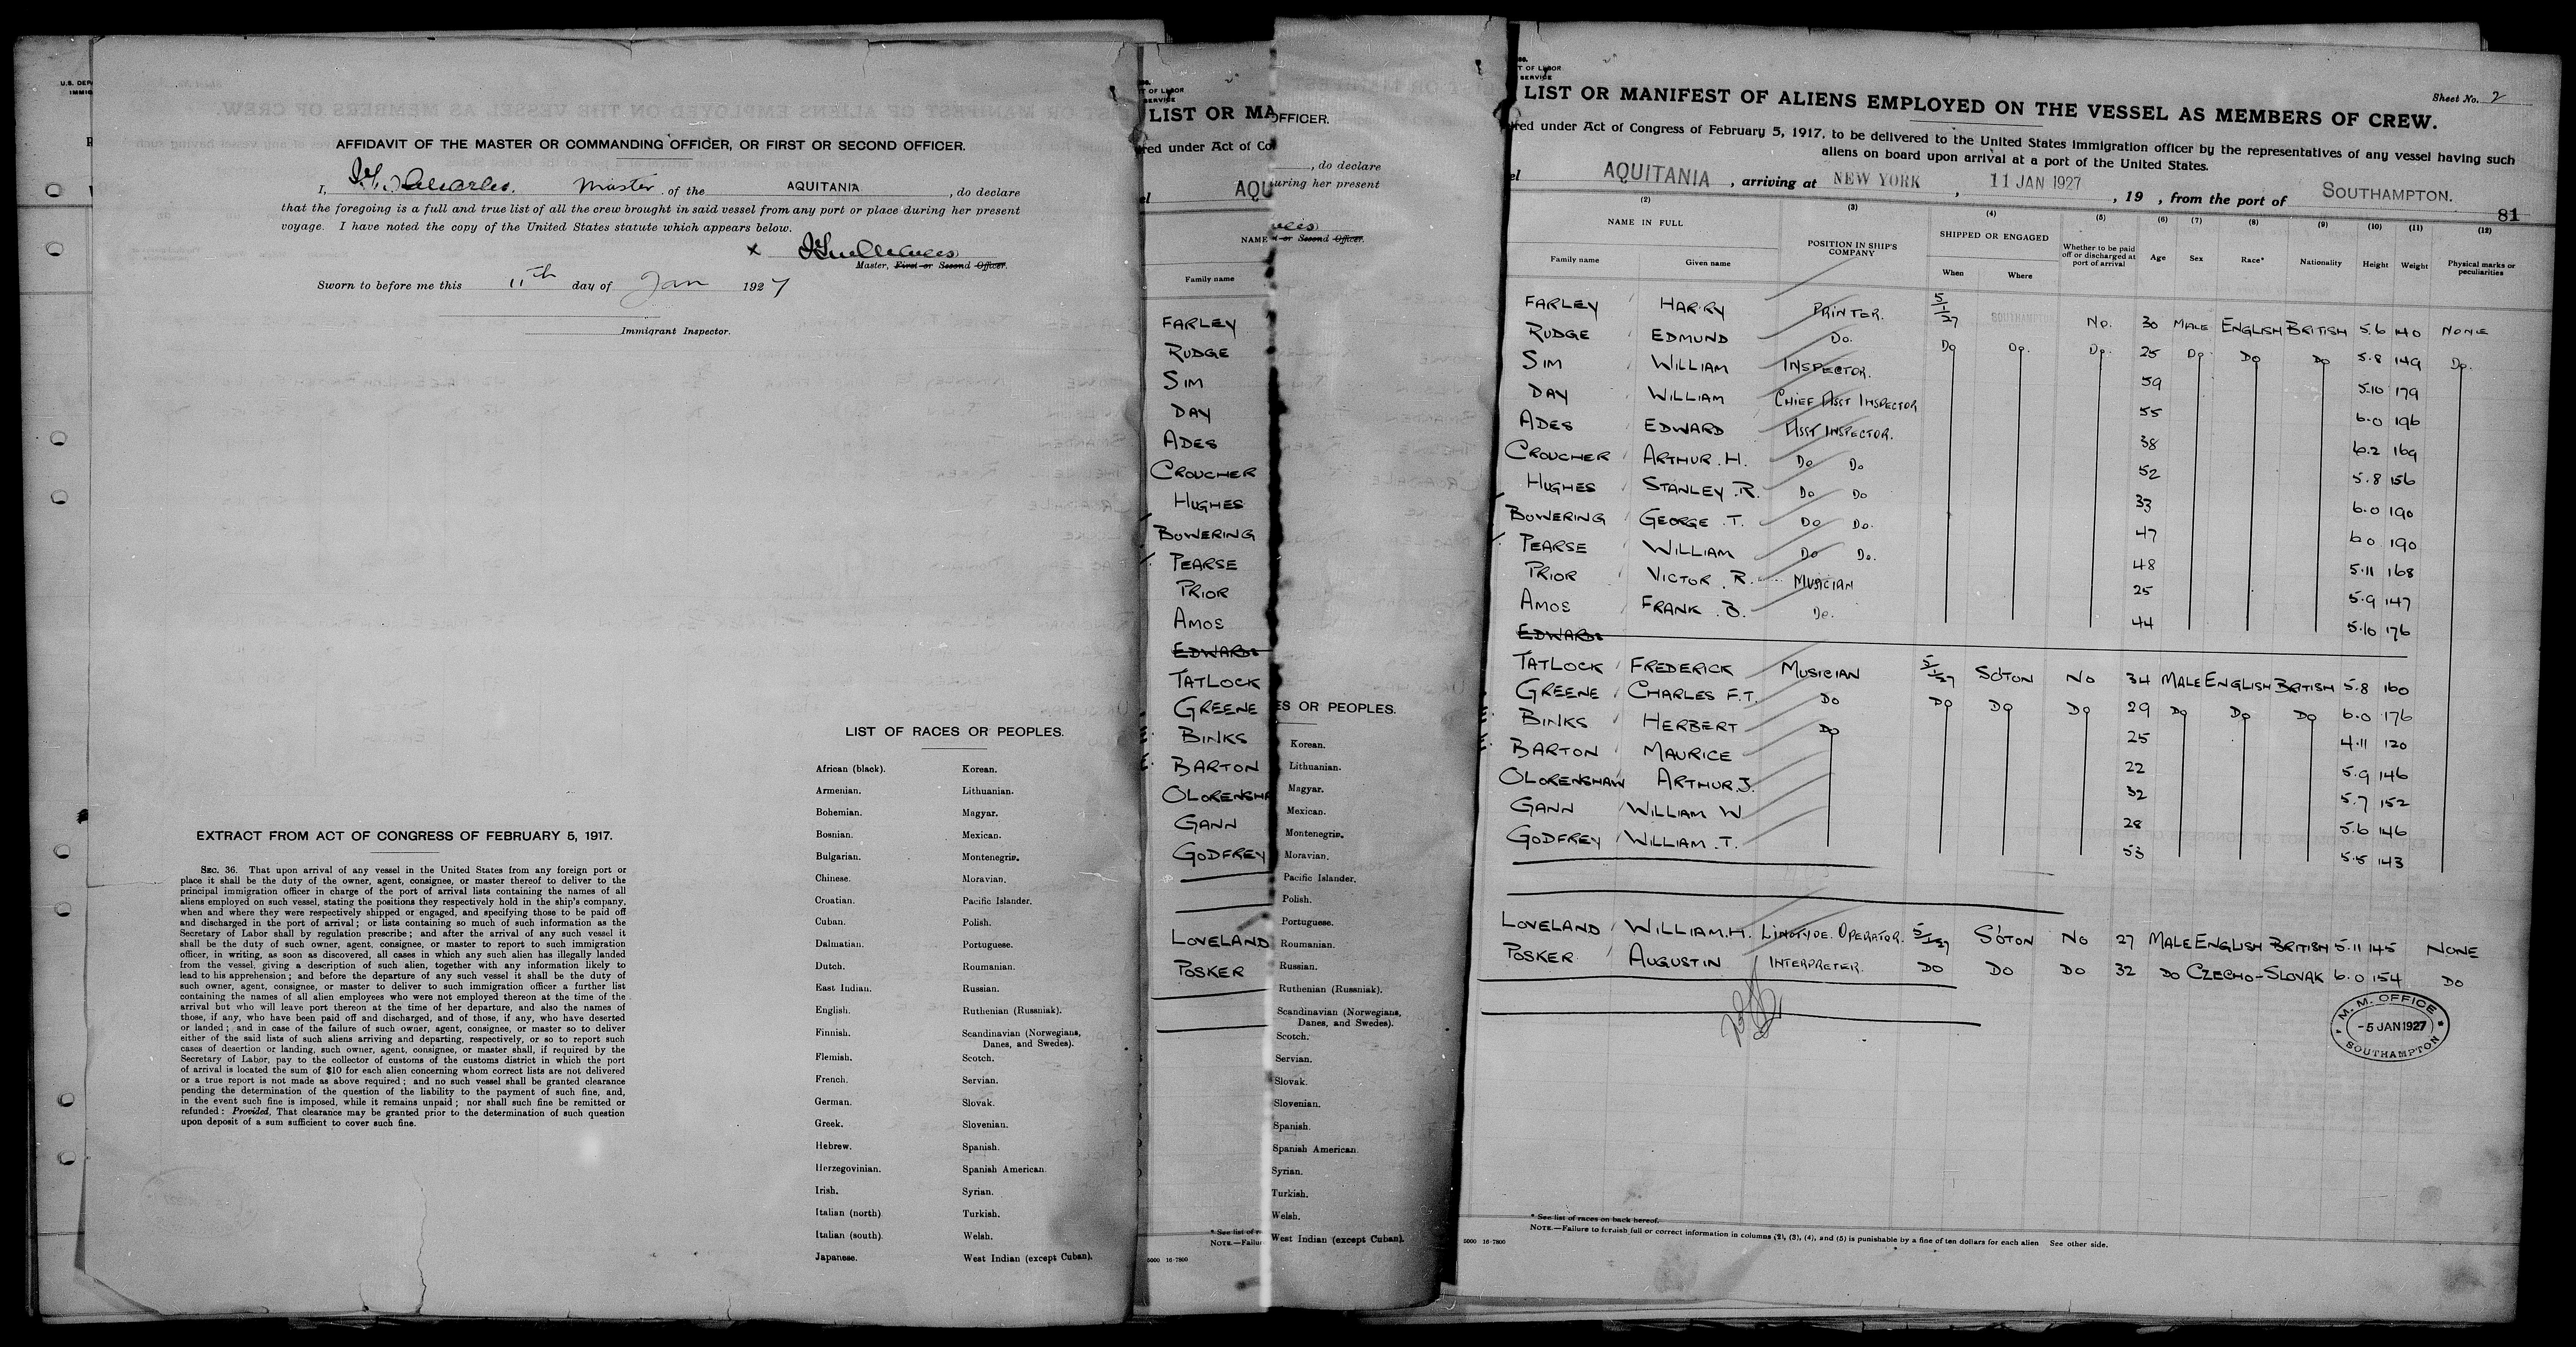 U.S. DEP
IMMIG
AFFIDAVIT OF THE MASTER OR COMMANDING OFFICER, OR FIRST OR SECOND OFFICER.
I, Charles. Master of the AQUITANIA, do declare
that the foregoing is a full and true list of all the crew brought in said vessel from any port or place during her present
voyage. I have noted the copy of the United States statute which appears below.
x
Master, First or Second Officer.
Sworn to before me this 11th day of Jan 1927
Immigrant Inspector.
LIST OF RACES OR PEOPLES.
African (black). Korean.
Armenian. Lithuanian.
Bohemian. Magyar.
Bosnian. Mexican.
Bulgarian. Montenegrin.
Chinese. Moravian.
Croatian. Pacific Islander.
Cuban. Polish.
Dalmatian. Portuguese.
Dutch. Roumanian.
East Indian. Russian.
English. Ruthenian (Russniak).
Finnish. Scandinavian (Norwegians,
Danes, and Swedes).
Flemish. Scotch.
French. Servian.
German. Slovak.
Greek. Slovenian.
Hebrew. Spanish.
Herzegovinian. Spanish American.
Irish. Syrian.
Italian (north) Turkish.
Italian (south). Welsh.
Japanese. West Indian (except Cuban).
EXTRACT FROM ACT OF CONGRESS OF FEBRUARY 5, 1917.
SEC. 36. That upon arrival of any vessel in the United States from any foreign port or
place it shall be the duty of the owner, agent, consignee, or master thereof to deliver to the
principal immigration officer in charge of the port of arrival lists containing the names of all
aliens employed on such vessel, stating the positions they respectively hold in the ship's company,
when and where they were respectively shipped or engaged, and specifying those to be paid off
and discharged in the port of arrival; or lists containing so much of such information as the
Secretary of Labor shall by regulation prescribe; and after the arrival of any such vessel it
shall be the duty of such owner, agent, consignee, or master to report to such immigration
officer, in writing, as soon as discovered, all cases in which any such alien has illegally landed
from the vessel, giving a description of such alien, together with any information likely to
lead to his apprehension; and before the departure of any such vessel it shall be the duty of
such owner, agent, consignee, or master to deliver to such immigration officer a further list
containing the names of all alien employees who were not employed thereon at the time of the
arrival but who will leave port thereon at the time of her departure, and also the names of
those, if any, who have been paid off and discharged, and of those, if any, who have deserted
or landed; and in case of the failure of such owner, agent, consignee, or master so to deliver
either of the said lists of such aliens arriving and departing, respectively, or so to report such
cases of desertion or landing, such owner, agent, consignee, or master shall, if required by the
Secretary of Labor, pay to the collector of customs of the customs district in which the port
of arrival is located the sum of $10 for each alien concerning whom correct lists are not delivered
or a true report is not made as above required; and no such vessel shall be granted clearance
pending the determination of the question of the liability to the payment of such fine, and,
in the event such fine is imposed, while it remains unpaid; nor shall such fine be remitted or
refunded: Provided, That clearance may be granted prior to the determination of such question
upon deposit of a sum sufficient to cover such fine.
T OF LABOR
SERVICE
LIST OR MA
red under Act of Co
el AQU
NAME
Family name
FARLEY
RUDGE
SIM
DAY
ADES
CROUCHER
HUGHES
BOWERING
PEARSE
PRIOR
AMOS
EDWARDS
TATLOCK
GREENE
BINKS
BARTON
OLORENSHA
GANN
GODFREY
LOVELAND
POSKER
* See list of r
NOTE.—Failur
5000 16-7800
OFFICER.
, do declare
uring her present
t or Second Officer.
ES OR PEOPLES.
Korean.
Lithuanian.
Magyar.
Mexican.
Montenegrin.
Moravian.
Pacific Islander.
Polish.
Portuguese.
Roumanian.
Russian.
Ruthenian (Russniak).
Scandinavian (Norwegians,
Danes, and Swedes).
Scotch.
Servian.
Slovak.
Slovenian.
Spanish.
Spanish American.
Syrian.
Turkish.
Welsh.
West Indian (except Cuban).
T OF LABOR
SERVICE
Sheet No. 2
LIST OR MANIFEST OF ALIENS EMPLOYED ON THE VESSEL AS MEMBERS OF CREW.
red under Act of Congress of February 5, 1917, to be delivered to the United States immigration officer by the representatives of any vessel having such
aliens on board upon arrival at a port of the United States.
el AQUITANIA, arriving at NEW YORK, 11 JAN 1927, 19 , from the port of SOUTHAMPTON.
81
(2) (3) (4) (5) (6) (7) (8) (9) (10) (11) (12)
NAME IN FULL POSITION IN SHIP'S COMPANY SHIPPED OR ENGAGED Whether to be paid off or discharged at port of arrival Age Sex Race* Nationality Height Weight Physical marks or peculiarities
Family name Given name When Where
FARLEY HARRY PRINTER. 5/1/27 SOUTHAMPTON No. 30 MALE ENGLISH BRITISH 5.6 140 NONE
RUDGE EDMUND Do. Do Do. Do. 25 Do. Do Do 5.8 149 Do.
SIM WILLIAM INSPECTOR. 59 5.10 179
DAY WILLIAM CHIEF ASST INSPECTOR 55 6.0 196
ADES EDWARD ASST INSPECTOR. 38 6.2 169
CROUCHER ARTHUR.H. Do Do 52 5.8 156
HUGHES STANLEY.R. Do Do 33 6.0 190
BOWERING GEORGE.T. Do Do. 47 6.0 190
PEARSE WILLIAM Do Do. 48 5.11 168
PRIOR VICTOR.R. MUSICIAN 25 5.9 147
AMOS FRANK.B. Do. 44 5.10 176
EDWARDS
TATLOCK FREDERICK MUSICIAN 5/1/27 SO'TON NO 34 MALE ENGLISH BRITISH 5.8 160
GREENE CHARLES F.T. DO DO DO DO 29 DO DO DO 6.0 176
BINKS HERBERT DO 25 4.11 120
BARTON MAURICE 22 5.9 146
OLORENSHAW ARTHUR J. 32 5.7 152
GANN WILLIAM W 28 5.6 146
GODFREY WILLIAM.T. 53 5.5 143
LOVELAND WILLIAM.H. LINOTYPE OPERATOR. 5/1/27 SO'TON NO 27 MALE ENGLISH BRITISH 5.11 145 NONE
POSKER AUGUSTIN INTERPRETER. DO DO DO 32 DO CZECHO-SLOVAK 6.0 154 DO
M.M. OFFICE
-5 JAN 1927
SOUTHAMPTON
* See list of races on back hereof.
NOTE.—Failure to furnish full or correct information in columns (2), (3), (4), and (5) is punishable by a fine of ten dollars for each alien See other side.
5000 16-7800